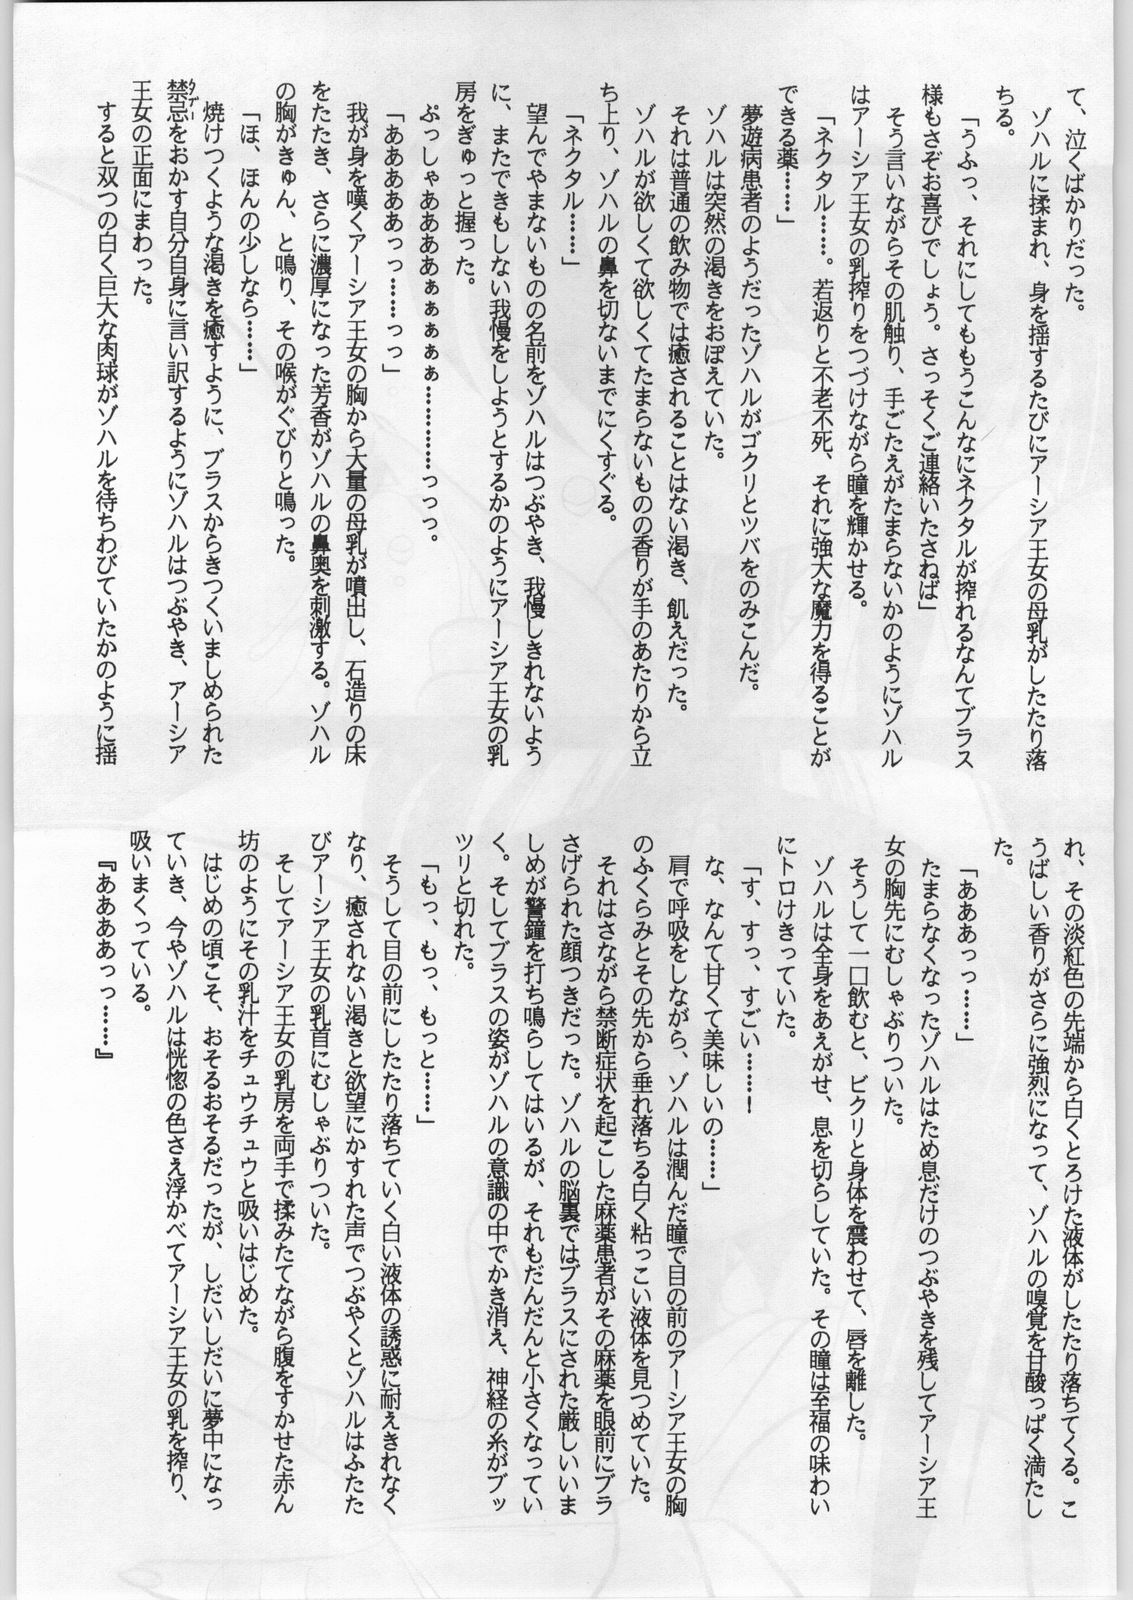 て、泣くばかりだった。
ゾハルに揉まれ、身を揺するたびにアーシア王女の母乳がしたたり落
ちる。
「うふっ、それにしてももうこんなにネクタルが搾れるなんてブラス
様もさぞお喜びでしょう。さっそくご連絡いたさねば」
そう言いながらその肌触り、手ごたえがたまらないかのようにゾハル
はアーシア王女の乳搾りをつづけながら瞳を輝かせる。
「ネクタル……。若返りと不老不死、それに強大な魔力を得ることが
できる薬……」
夢遊病患者のようだったゾハルがゴクリとツバをのみこんだ。
ゾハルは突然の渇きをおぼえていた。
それは普通の飲み物では癒されることはない渇き、飢えだった。
ゾハルが欲しくて欲しくてたまらないものの香りが手のあたりから立
ち上り、ゾハルの鼻を切ないまでにくすぐる。
「ネクタル……」
望んでやまないものの名前をゾハルはつぶやき、我慢しきれないよう
に、またできもしない我慢をしようとするかのようにアーシア王女の乳
房をぎゅっと握った。
ぷっしゃあああああぁぁぁぁぁ…………っっっ。
「ああああああっっ……っっ」
我が身を嘆くアーシア王女の胸から大量の母乳が噴出し、石造りの床
をたたき、さらに濃厚になった芳香がゾハルの鼻奥を刺激する。ゾハル
の胸がきゅん、と鳴り、その喉がぐびりと鳴った。
「ほ、ほんの少しなら……」
焼けつくような渇きを癒すように、ブラスからきつくいましめられた
禁忌をおかす自分自身に言い訳するようにゾハルはつぶやき、アーシア
タブー
王女の正面にまわった。
すると双つの白く巨大な肉球がゾハルを待ちわびていたかのように揺
れ、その淡紅色の先端から白くとろけた液体がしたたり落ちてくる。こ
うばしい香りがさらに強烈になって、ゾハルの嗅覚を甘酸っぱく満たし
た。
「あああっっ……」
たまらなくなったゾハルはため息だけのつぶやきを残してアーシア王
女の胸先にむしゃぶりついた。
そうして一口飲むと、ビクリと身体を震わせて、唇を離した。
ゾハルは全身をあえがせ、息を切らしていた。その瞳は至福の味わい
にトロけきっていた。
「す、すっ、すごい……！
な、なんて甘くて美味しいの……」
肩で呼吸をしながら、ゾハルは潤んだ瞳で目の前のアーシア王女の胸
のふくらみとその先から垂れ落ちる白く粘っこい液体を見つめていた。
それはさながら禁断症状を起こした麻薬患者がその麻薬を眼前にブラ
さげられた顔つきだった。ゾハルの脳裏ではブラスにされた厳しいいま
しめが警鐘を打ち鳴らしてはいるが、それもだんだんと小さくなってい
く。そしてブラスの姿がゾハルの意識の中でかき消え、神経の糸がブッ
ツリと切れた。
「もっ、もっ、もっと……」
そうして目の前にしたたり落ちていく白い液体の誘惑に耐えきれなく
なり、癒されない渇きと欲望にかすれた声でつぶやくとゾハルはふたた
びアーシア王女の乳首にむしゃぶりついた。
そしてアーシア王女の乳房を両手で揉みたてながら腹をすかせた赤ん
坊のようにその乳汁をチュウチュウと吸いはじめた。
はじめの頃こそ、おそるおそるだったが、しだいしだいに夢中になっ
ていき、今やゾハルは恍惚の色さえ浮かべてアーシア王女の乳を搾り、
吸いまくっている。
『ああああっっ……』